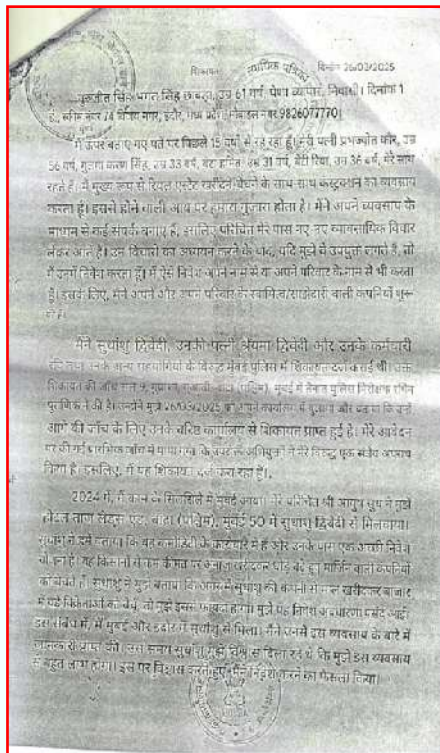 शिकायत दिनांक 26/03/2025
गुरुजीत सिंह भगत सिंह छाबड़ा, उम्र 61 वर्ष, पेशा व्यापार, निवासी। दिनांक 1
डी, स्कीम नंबर 74 विजय नगर, इंदौर, मध्य प्रदेश, मोबाइल नंबर 9826077770।
मैं ऊपर बताए गए पते पर पिछले 15 वर्षों से रह रहा हूं। मेरी पत्नी प्रभज्योत कौर, उम्र
56 वर्ष, करण सिंह, उम्र 33 वर्ष, बेटा उम्र 31 वर्ष, बेटी रिया, उम्र 36 वर्ष, मेरे साथ
रहते हैं। मैं मुख्य रूप से रियल एस्टेट खरीदने बेचने के साथ साथ कंस्ट्रक्शन का व्यवसाय
करता हूं। इससे होने वाली आय पर हमारा गुजारा होता है। मैंने अपने व्यवसाय के
माध्यम से कई संपर्क बनाए हैं, इसलिए परिचित मेरे पास नए नए व्यावसायिक विचार
लेकर आते हैं। उन विचारों का अध्ययन करने के बाद, यदि मुझे वे उपयुक्त लगते हैं, तो
मैं उनमें निवेश करता हूं। मैं ऐसे निवेश अपने नाम से या अपने परिवार के नाम से भी करता
हूं। इसके लिए, मैंने अपने और अपने परिवार के स्वामित्व/साझेदारी वाली कंपनियां शुरू
की हैं।
मैंने सुधांशु द्विवेदी, उनकी पत्नी श्रेयना द्विवेदी और उनके कर्मचारी
तथा उनके अन्य सहयोगियों के विरुद्ध मुंबई पुलिस में शिकायत दर्ज कराई थी। उक्त
शिकायत की जांच 9, बांद्रा (पश्चिम), मुंबई में तैनात पुलिस निरीक्षक सचिन
पुराणिक ने की है। उन्होंने मुझे 26/03/2025 को अपने कार्यालय में बुलाया और कहा कि उन्हें
आगे की जांच के लिए उनके वरिष्ठ कार्यालय से शिकायत प्राप्त हुई है। मेरे आवेदन
पर की गई प्रारंभिक जांच में पाया गया कि उपरोक्त अभियुक्तों ने मेरे विरुद्ध एक संज्ञेय अपराध
किया है। इसलिए, मैं यह शिकायत दर्ज करा रहा हूं।
2024 में, मैं काम के सिलसिले में मुंबई आया। मेरे परिचित श्री आयुष सुध ने मुझे
होटल ताज लैंड्स एंड, बांद्रा (पश्चिम), मुंबई 50 में सुधांशु द्विवेदी से मिलवाया।
सुधांशु ने हमें बताया कि वह कमोडिटी के कारोबार में हैं और उनके पास एक अच्छी निवेश
योजना है। वह किसानों से कम कीमत पर अनाज खरीदकर थोड़े बढ़े हुए मार्जिन वाली कंपनियों
को बेचते हैं। सुधांशु ने मुझे बताया कि अगर मैं सुधांशु की कंपनी से माल खरीदकर बाजार
में बड़े विक्रेताओं को बेचूं, तो मुझे इससे फायदा होगा। मुझे यह निवेश अवधारणा पसंद आई।
इस संबंध में, मैं मुंबई और इंदौर में सुधांशु से मिला। मैंने उनसे इस व्यवसाय के बारे में
जानकारी प्राप्त की। उस समय सुधांशु मुझे विश्वास दिला रहे थे कि मुझे इस व्यवसाय
से बहुत लाभ होगा। इस पर विश्वास करते हुए, मैंने निवेश करने का फैसला किया।